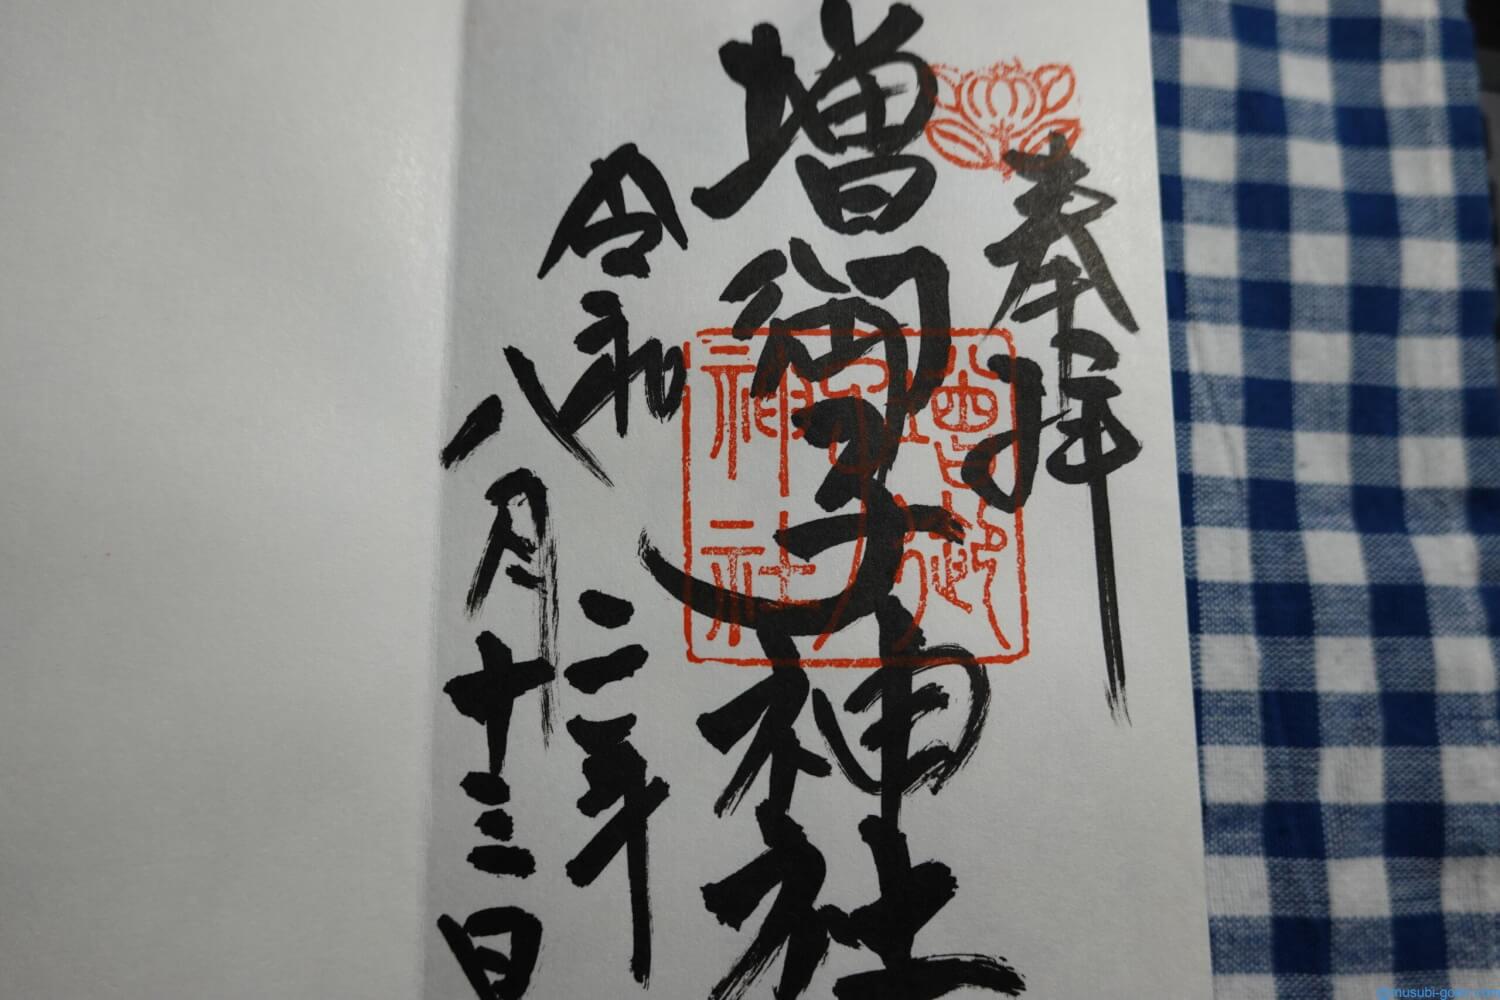 奉拝
増御子神社
増御子神社
令和二年
八月十三日